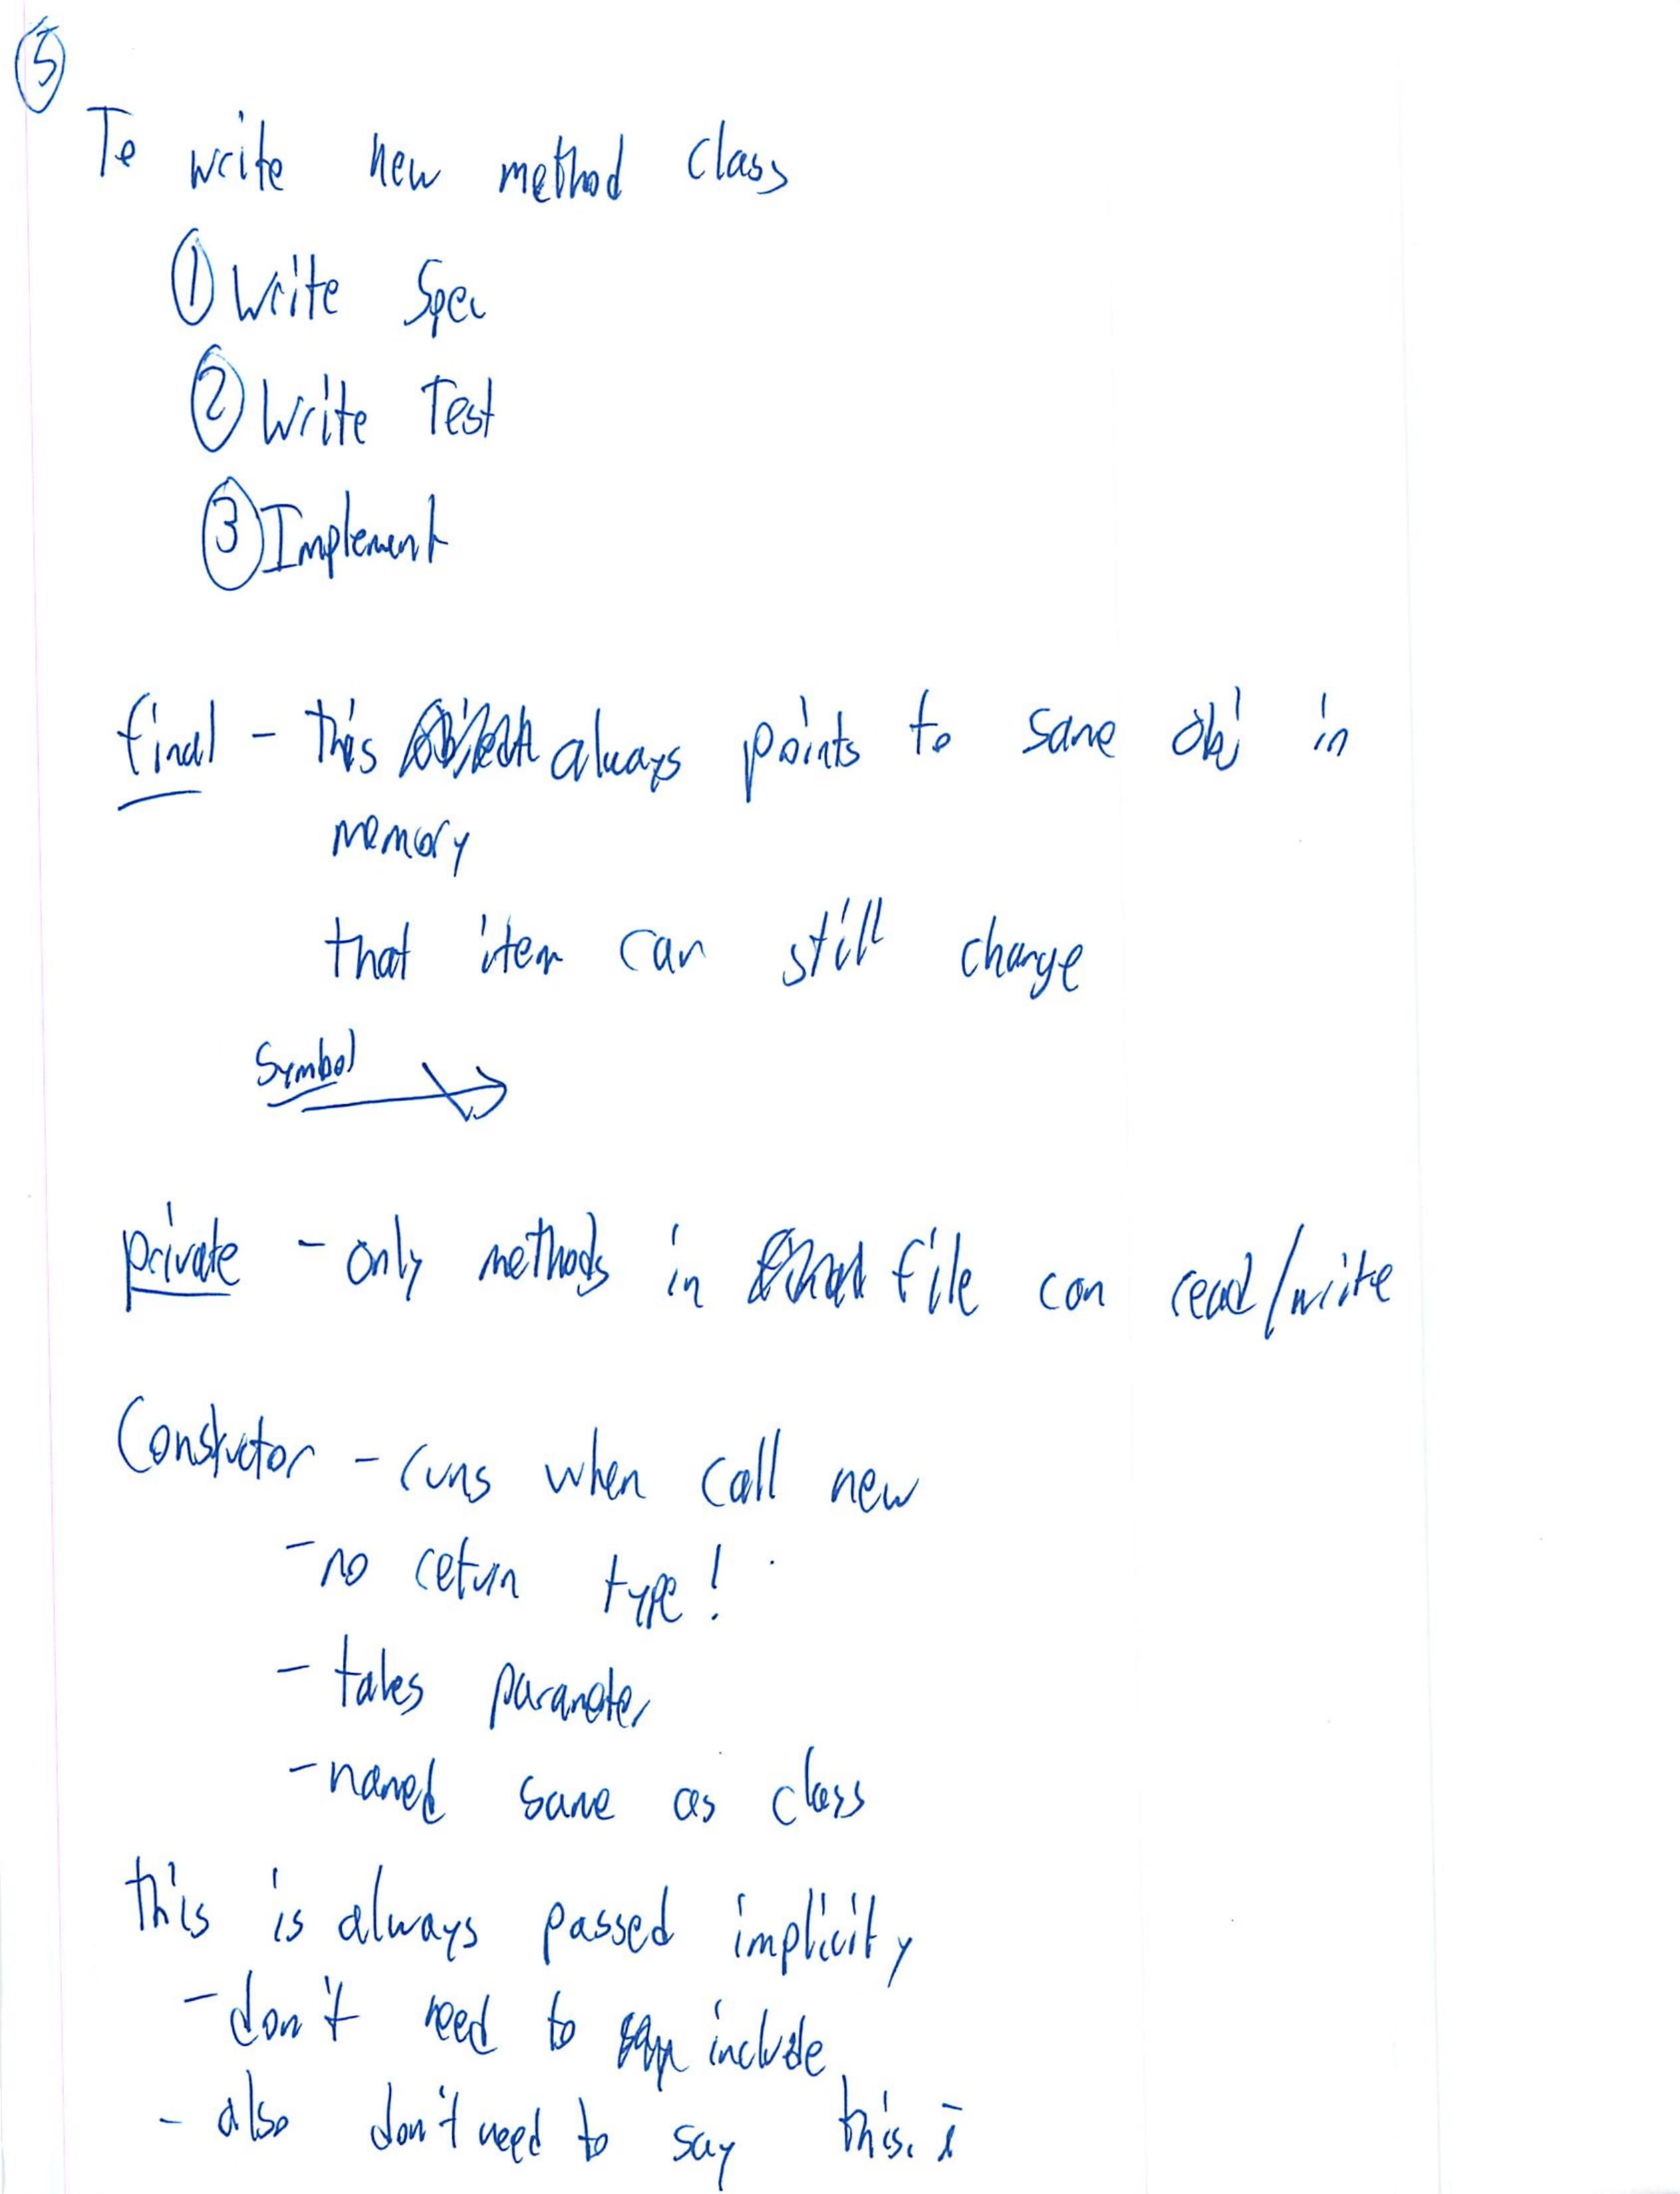 5
To write new method class
1 Write Spec
2 Write Test
3 Implement
final - this always points to same obj in
memory
that item can still change
Symbol
private - only methods in file can read/write
Constuctor - runs when call new
- no return type!
- takes parameter
- named same as class
this is always passed implicity
- don't need to include
- also don't need to say this. i